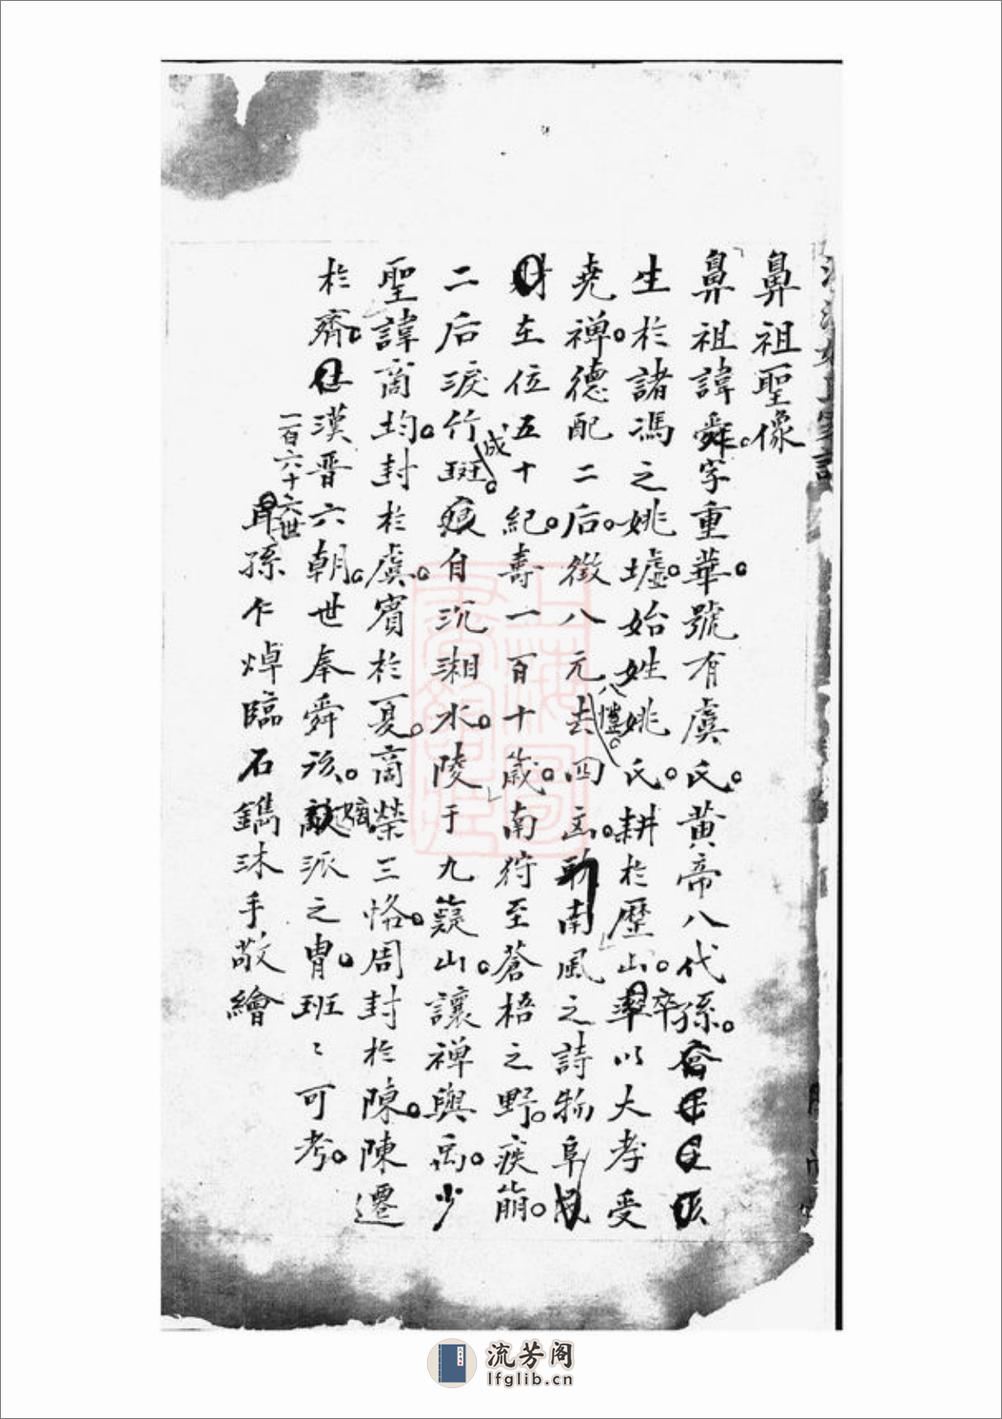 鼻祖聖像
鼻祖諱舜。字重華。號有虞氏。黃帝八代孫。
生於諸馮之姚墟。始姓姚氏。耕於歷山。卒以大孝受
堯禪。德配二后。徵八元八愷。去四凶。歌南風之詩物阜民
財在位五十成紀。壽一百十歲。南狩至蒼梧之野。疾崩。
二后淚竹斑。痕自沉湘水。陵于九嶷山。讓禪與禹。少
聖諱商均。封於虞。賓於夏。商榮三恪。周封於陳。陳遷
於齊。漢晉六朝。世奉舜祀。嫡派之胄。班〻可考。
一百六十六世
孫乍焯臨石鐫沐手敬繪
流芳阁
lfglib.cn